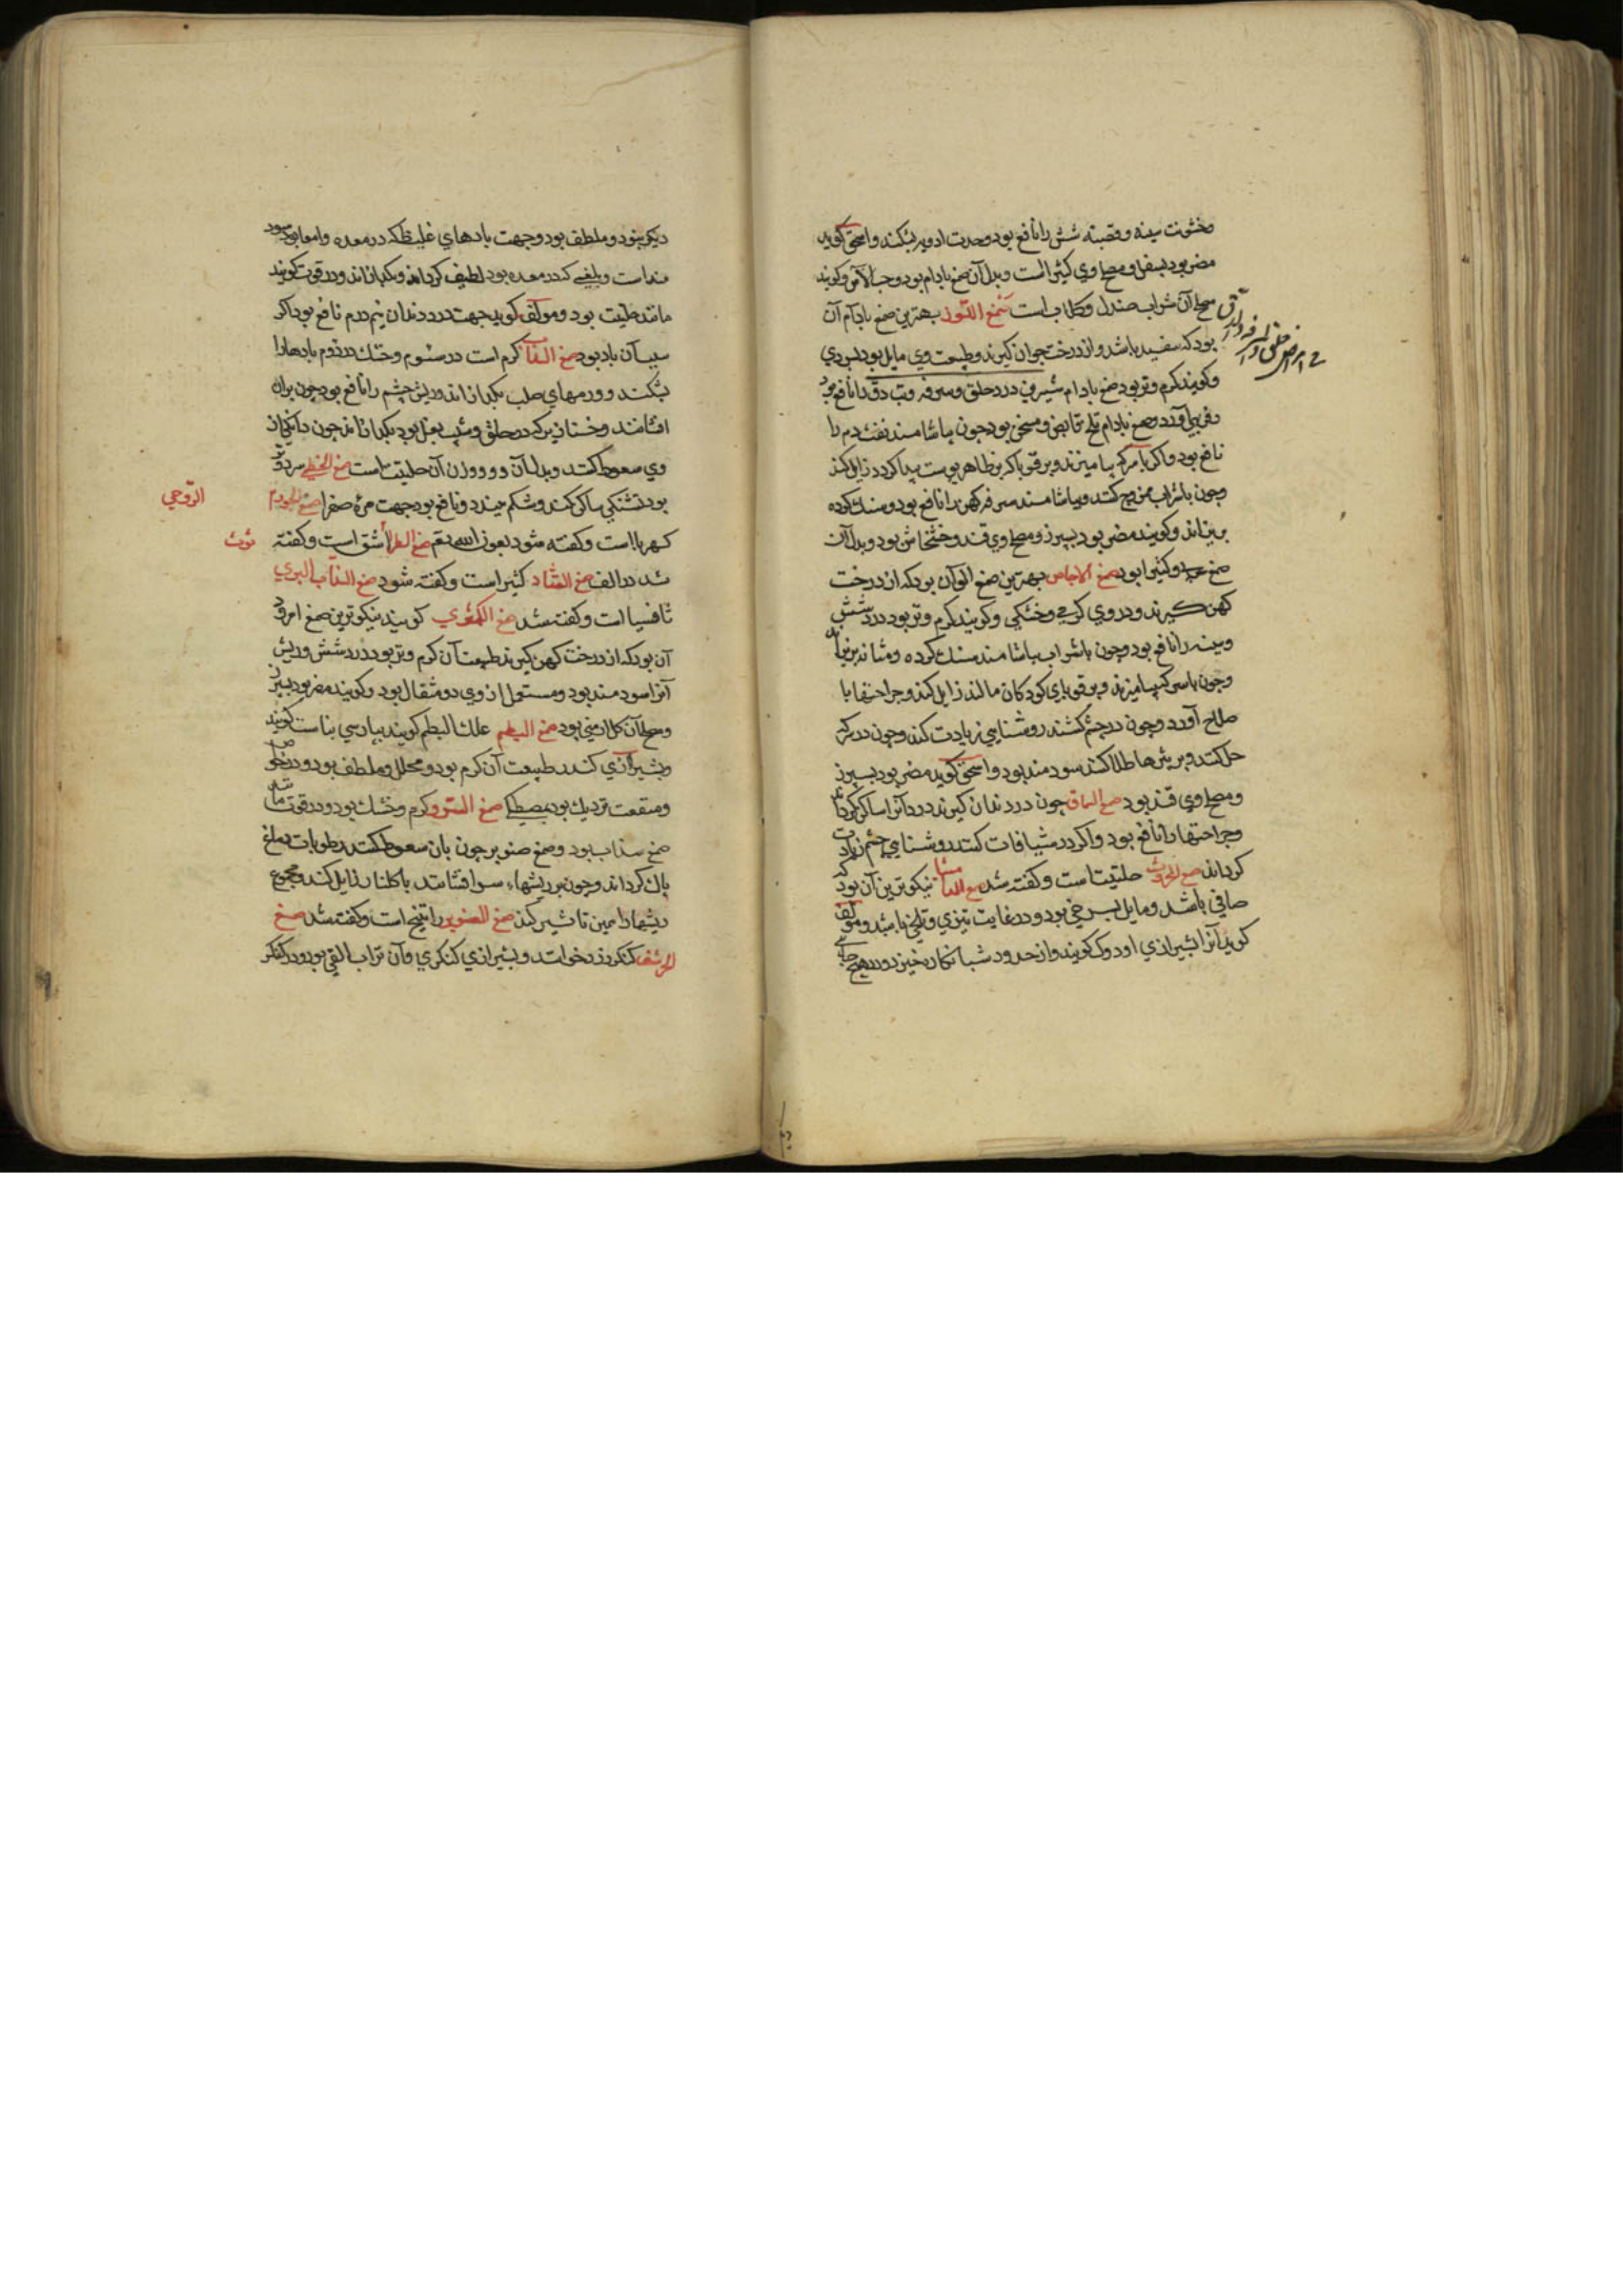 وخشونت سینه و قصبه شش را نافع بود و حدت ادویه بشکند و اسحق کوید
مضر بود بسفل و مصلح وی کثیراست و بدل آن صمغ بادام بود و حب الآس و کویند
مصلح آن شراب صندل و کلاب است صمغ اللوز بهترین صمغ بادام آن
بود که سفید باشد و از درخت جوان کیرند و طبیعت وی مایل بود بسردی
و کویند کرم و تر بود صمغ بادام شیرین درد حلق و سرفه و تب دق را نافع بود
و فربهی آورد و صمغ بادام تلخ قابض و مسخن بود چون بیاشامند نفث دم را
نافع بود و اکر با سرکه بیامیزند و بر قوبا که بر ظاهر پوست پیدا کردد زایل کند
و چون باشراب ممزوج کنند و بیاشامند سرفه کهن را نافع بود و سنک کرده
بریزاند و کویند مضر بود بسپرز و مصلح وی قند و خشخاش بود و بدل آن
صمغ عربی و کثیرا بود صمغ الاجاص بهترین صمغ الو آن بود که از درخت
کهن کیرند و در وی کرمی و خشکی و کویند کرم و تر بود درد شش
و سینه را نافع بود و چون باشراب بیاشامند سنک کرده و مثانه بریزاند
و چون با سرکه بیامیزند و بر قوبای کودکان مالند زایل کند و جراحتها با
صلاح آورد و چون در چشم کشند روشنایی زیادت کند و چون در سرکه
حل کنند و بر بثرها طلا کنند سودمند بود و اسحق کوید مضر بود بسپرز
و مصلح وی قند بود صمغ السماق چون در دندان کیرند درد آنرا ساکن کرداند
و جراحتها را نافع بود و اکر در شیافات کنند روشنایی چشم زیادت
کرداند صمغ المحروث حلتیت است و کفته شد صمغ الدامیثا نیکوترین آن بود که
صافی باشد و مایل بسرخی بود و در غایت تیزی و تلخی باشد و مولف
کوید آنرا بشیرازی اودوک کویند و از حدود شبانکاره خیزد و در هیچ جای
دیکر نبود و ملطف بود و جهت بادهای غلیظ که در معده و امعا بود سود
منداست و بلغمی که در معده بود لطیف کرداند و بکدازاند و در قوت کویند
مانند حلتیت بود و مولف کوید جهت درد دندان نیم درم نافع بود اکر
سبب آن باد بود صمغ السذاب کرم است در سئوم و خشک در دوم بادها را
بشکند و ورمهای صلب بکدازاند و ریش چشم را نافع بود چون بران
افشانند و خنازیر که در حلق و شیب بغل بود بکدازاند چون دانکی از
وی سعوط کنند و بدل آن دو وزن آن حلتیت است صمغ الخطمی سرد و تر
بود تشنکی ساکن کند و شکم ببندد و نافع بود جهت مرهٔ صفرا صمغ الجوز
الرومی
کهرباست و کفته شود بعون الله تعم صمغ الطرثوث اشق است و کفته
شد در الف صمغ القتاد کثیراست و کفته شود صمغ السذاب البری
ثافسیا است و کفته شد صمغ الکمثری کویند نیکوترین صمغ امرود
آن بود که از درخت کهن کیرند طبیعت آن کرم و تر بود درد شش و ریش
آنرا سودمند بود و مستعمل از وی دو مثقال بود و کویند مضر بود بسپرز
و مصلح آن کل ارمنی بود صمغ البطم علک البطم کویند بپارسی بناست کویند
و بشیرازی کندر طبیعت آن کرم بود و محلل و ملطف بود و در خواص
و منفعت نزدیک بود بمصطکی صمغ السرو کرم و خشک بود و در قوت مانند
صمغ سذاب بود و صمغ صنوبر چون بان سعوط کنند رطوبات دماغ
پاک کرداند و چون بر ریشهاء سر افشانند با کلنار زایل کند و مجموع
ریشها را همین تاثیر کند صمغ الصنوبر راتینج است و کفته شد صمغ
الحرشف کنکرزد خوانند و بشیرازی کنکری و آن تراب القی بود و در کنکر